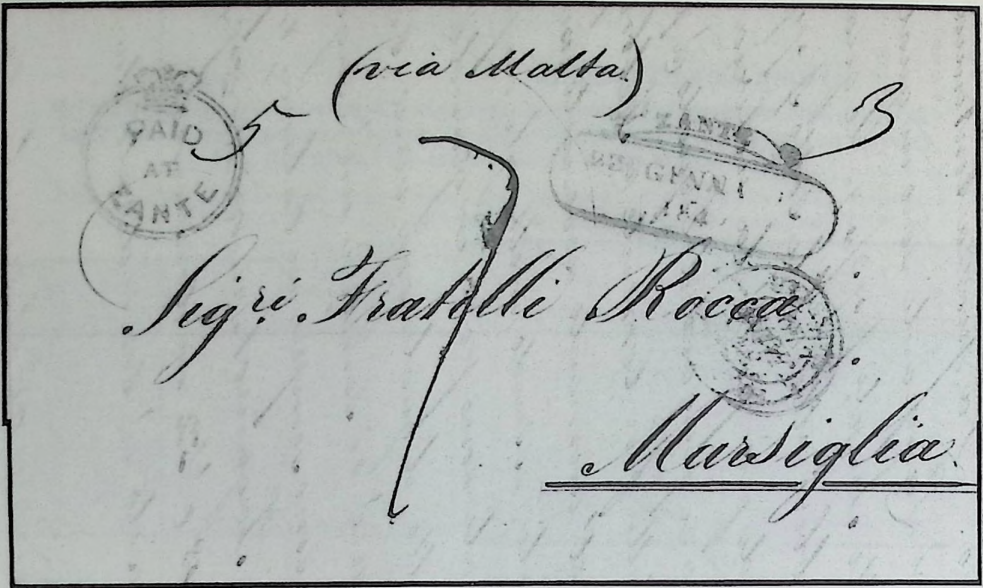 (via Malta)
PAID
AT
ZANTE
5
3
ZANTE
7
Sigri Fratelli Rocca
Marsiglia